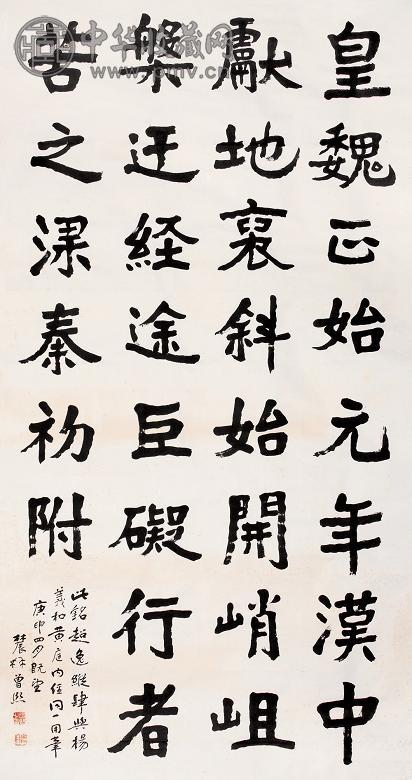 皇魏正始元年漢中
獻地褒斜始開峭岨
槃迂経途巨礙行者
苦之梁秦初附
此銘超逸縱肆與楊
羲和黄庭內經同一用筆
庚申四月既望
農髯曾熙
中华收藏网